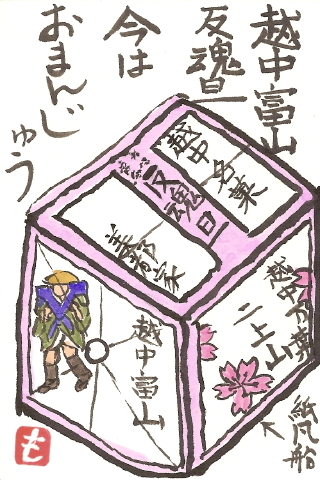 越中富山
反魂旦
今は
おまんじゅう
越中名菓
反魂旦
越中富山
越中万葉
二上山
紙风船
も